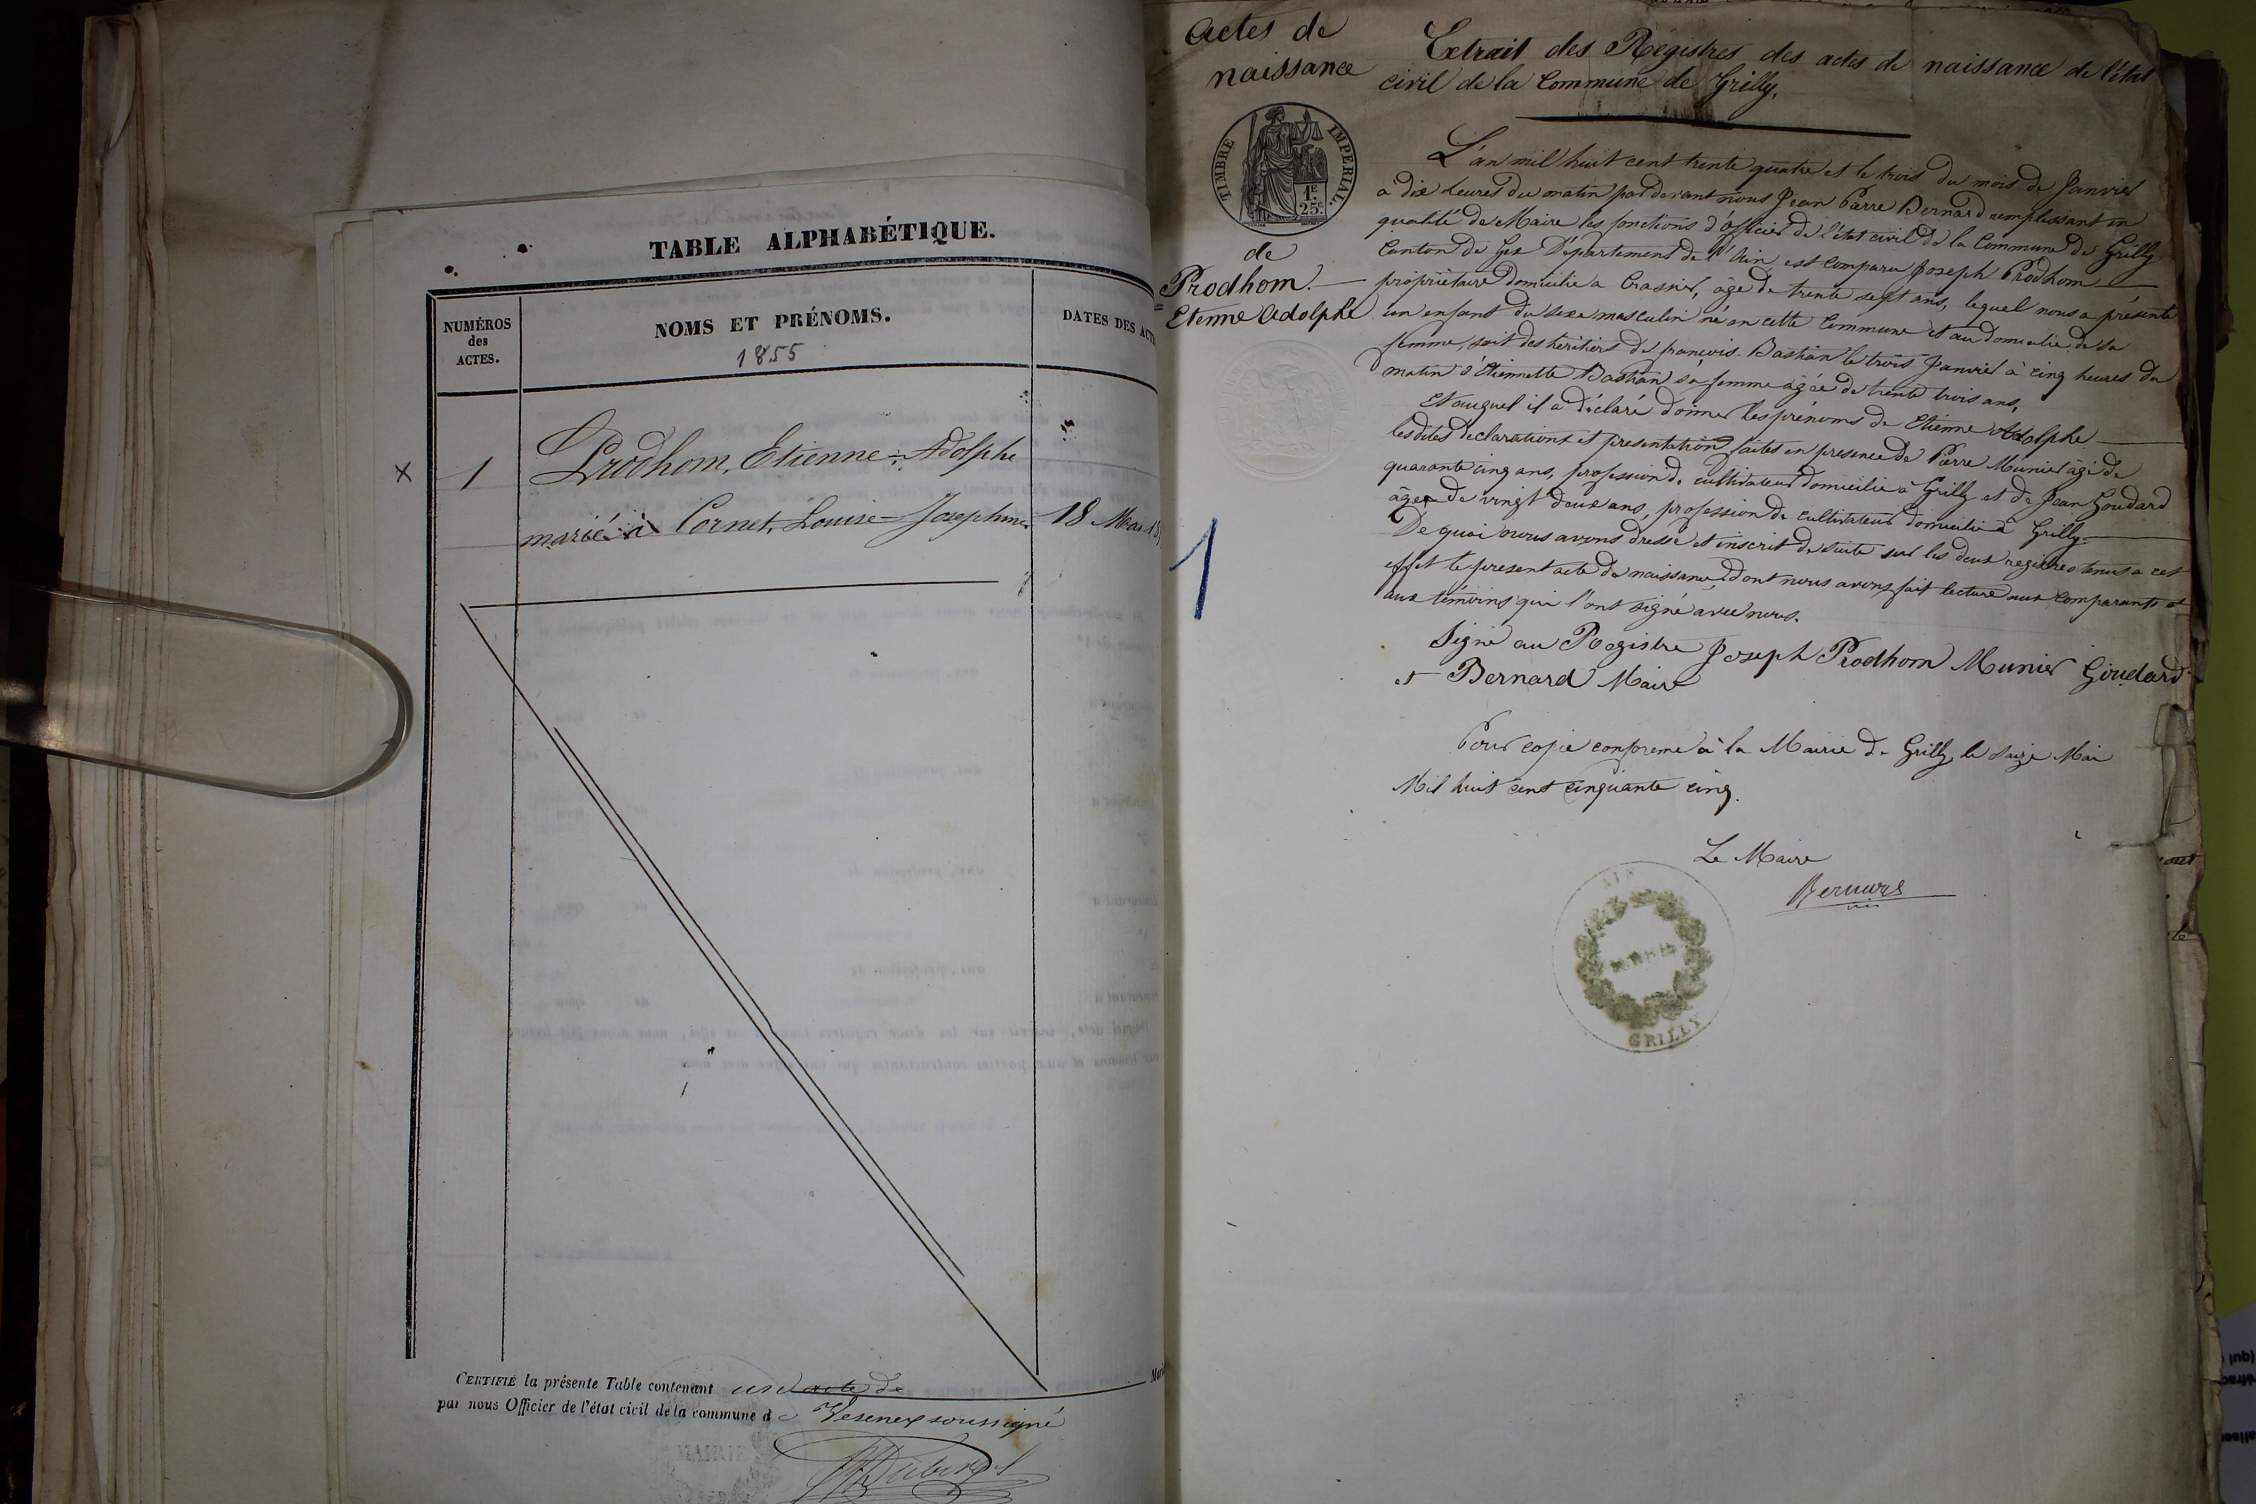 TABLE ALPHABÉTIQUE.
NUMÉROS
des
ACTES.
NOMS ET PRÉNOMS.
1855
DATES DES ACT
X 1 Prodhom, Etienne-Adolphe
marié à Cornet, Louise-Josephine 18 Mai 18
CERTIFIÉ la présente Table contenant un acte de Mari
par nous Officier de l'état civil de la commune de Vesenex soussigné
MAIRIE
Actes de
naissance
TIMBRE IMPERIAL.
1F
25c
de
Prodhom.
Etienne Adolphe
1
Extrait des Régistres des actes de naissance de l'état
civil de la Commune de Grilly.
L'an mil huit cent trente quatre et le trois du mois de Janvier
à dix heures du matin pardevant nous Jean Pierre Bernard remplissant en
qualité de Maire les fonctions d'officier de l'état civil de la Commune de Grilly
Canton de Gex Département de l'Ain est comparu Joseph Prodhom
propriétaire domicilié a Crasier, âgé de trente sept ans, lequel nous a présenté
un enfant du sexe masculin né en cette Commune et au domicile de sa
femme, soit des héritiers de françois Bastian le trois Janvier à cinq heures du
matin d'Etiennette Bastian sa femme âgée de trente trois ans,
Et auquel il a déclaré donner les prénoms de Etienne Adolphe
lesdites declarations et presentation faites en presence de Pierre Munier âgé de
quarante cinq ans, profession de cultivateur domicilié à Grilly et de Jean Goudard
âgé de vingt deux ans, profession de cultivateur domicilié à Grilly.
De quoi nous avons dressé et inscrit de suite sur les deux registres tenus a cet
effet le present acte de naissance, dont nous avons fait lecture aux comparants et
aux témoins qui l'ont signé avec nous.
Signé au Registre Joseph Prodhom Munier Goudard
et Bernard Maire
Pour copie conforme à la Mairie de Grilly, le seize Mai
Mil huit cent cinquante cinq.
Le Maire
Bernard
AIN
MAIRIE
GRILLY